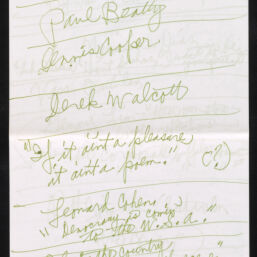 Paul Beatty
Dennis Cooper
Derek Walcott
"If it aint a pleasure
it aint a poem." (-?)
Leonard Cohen:
"Democracy is coming
to the U.S.A."
the country